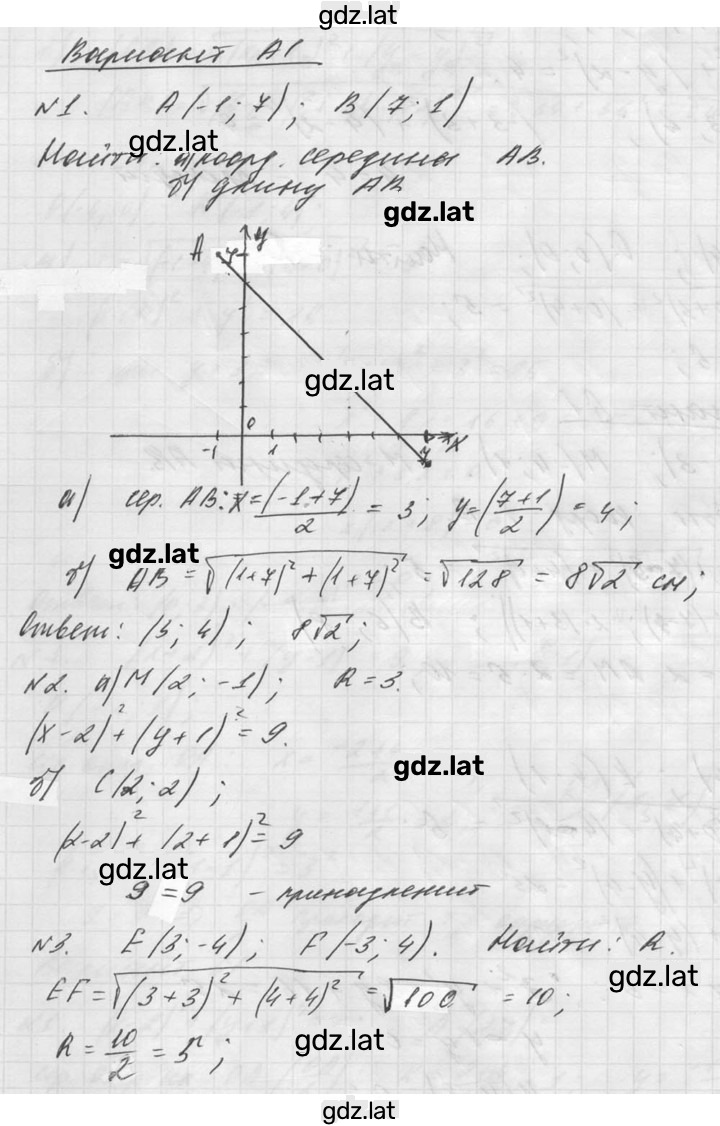 gdz.lat
Вариант А1
N1. A(-1; 7); B(7; 1)
gdz.lat
Найти: а) коорд. середины AB.
б) длину AB
gdz.lat
A 7 y
gdz.lat
0
-1 1 7 x
а) сер. AB: x=(-1+7)/2 = 3; y=(7+1/2) = 4;
gdz.lat
б) AB = √(1+7)²+(1+7)² = √128 = 8√2 см;
Ответ: (3; 4); 8√2;
N2. а) M(2; -1); R=3.
(x-2)²+(y+1)²=9.
gdz.lat
б) C(2; 2);
(2-2)²+(2+8)²=9
gdz.lat
9=9 - принадлежит
N3. E(3; -4); F(-3; 4). Найти: R.
gdz.lat
EF=√(3+3)²+(4+4)²=√100 = 10;
gdz.lat
R=10/2=5;
gdz.lat